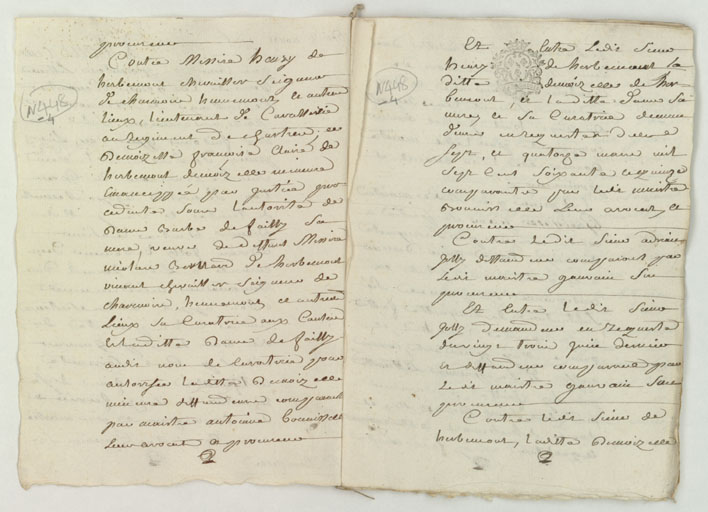 procureur
Contre Messire henry de
herbemont chevallier Seigneur
de charmoire hennemont, et autres
lieux, Lieutenant de Cavallerie
au regiment de chartres, et
Demoiselle françoise Claire de
herbemont demoiselle mineure
emancippée par justice pro
cedante sous l'autorité de
Dame Barbe de failly Sa
mere, veuve de deffunt Messire
nicolas de herbemont
vivant chevallier Seigneur de
charmoire, hennemont, et autres
Lieux Sa Curatrice aux Causes
et laditte Dame de failly
audit nom de Curatrice pour
autoriser laditte Demoiselle
mineure deffendeurs comparants
par maitre antoine
Leur avocat et procureur
2
N448
4
Et Entre Ledit Sieur
henry de herbemont la
ditte demoiselle de her
bemont, et laditte dame Sa
mere et Sa Curatrice deman
deurs en requette des
Sept, et quatorze mars mil
Sept Cent Soixante et quinze
comparants par ledit maitre
Leur avocat, et
procureur
Contre ledit Sieur adrien
Jolly deffendeur comparant par
ledit maitre gauvain Son
procureur
Et Entre ledit Sieur
Jolly demandeur en requette
du vingt trois juin dernier
et deffendeur comparant par
ledit maitre gauvain Son
procureur
Contre ledit Sieur de
herbemont, laditte Demoiselle
2
N448
4